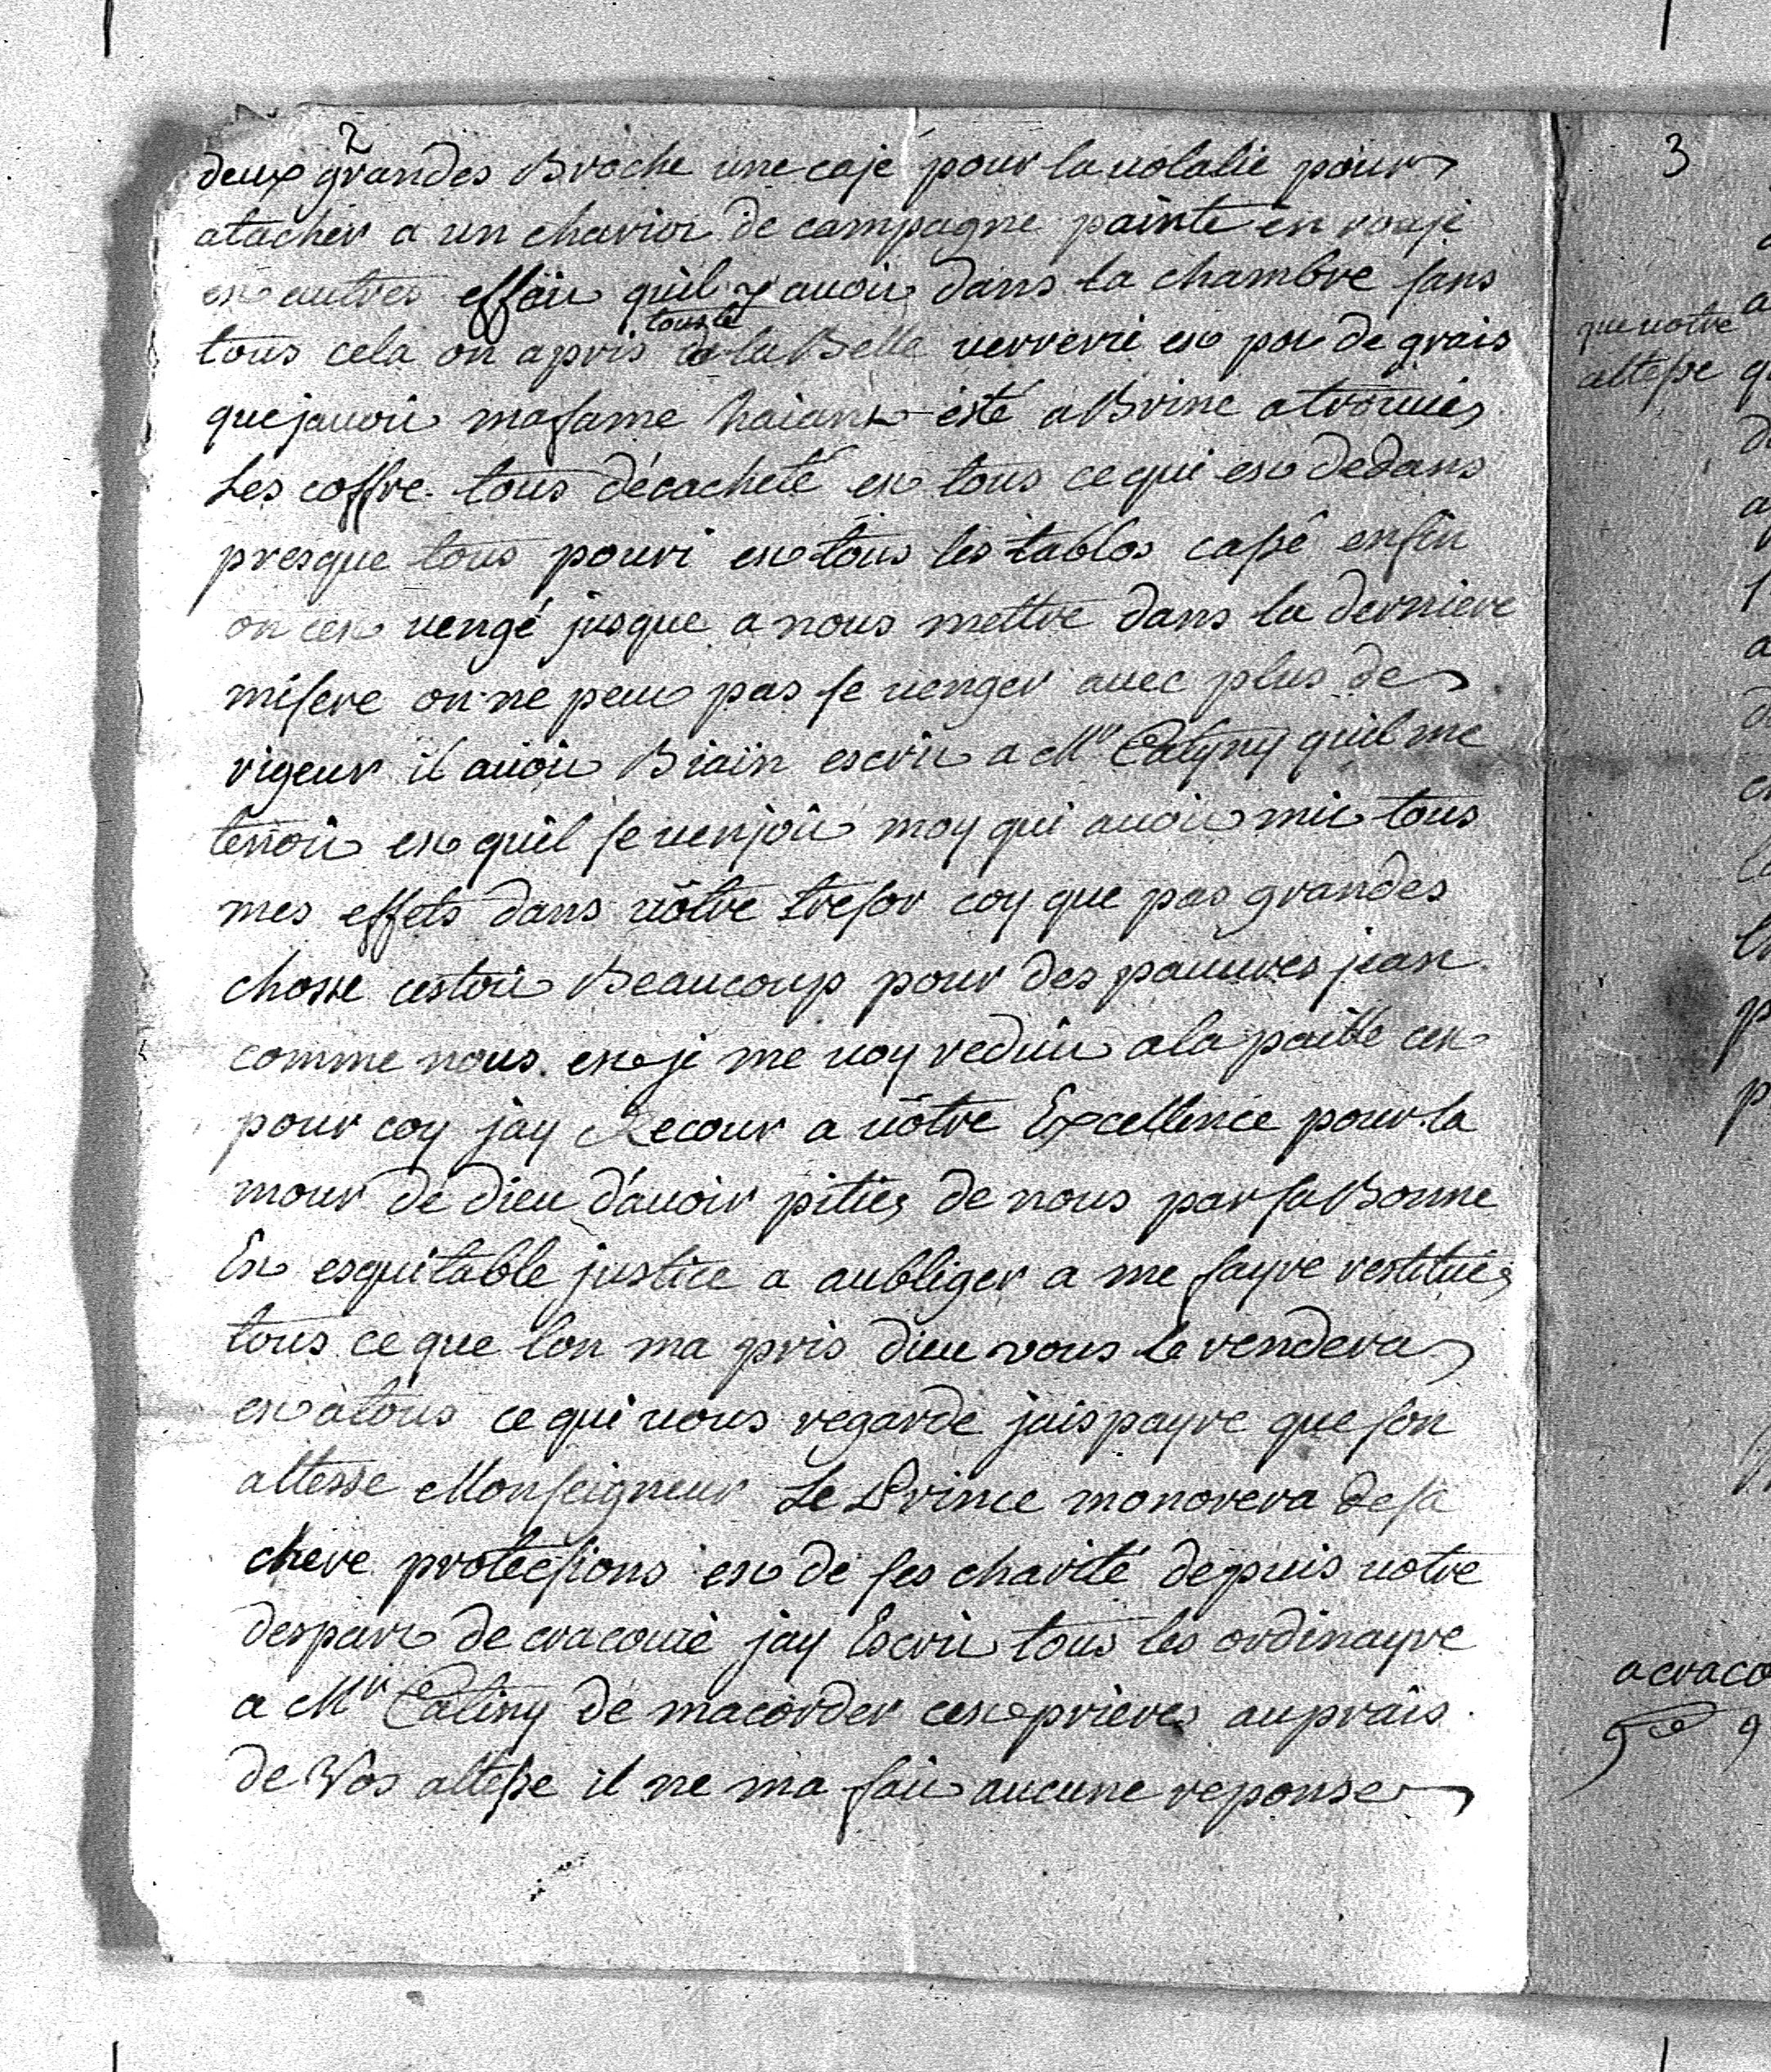 2
deux grandes Broche une caje pour la volalie pour
atacher a un chariot de campagne painte en rouje
et autres effait quil y avoit dans la chambre sans
touste
tous cela on apris la Belle verrerie et po de grais
que javoit ma fame haiant esté a Brine a trouvies
Les coffre tous décacheté et tous ce qui est dedans
presque tous pouri et tous les tablos cassé enfin
on cet vengé jusque a nous mettre dans la derniere
misere on ne peut pas se venger avec plus de
rigeur il avoit Biain escrit a Mr Catyny quil me
tenoit et quil se venjoit moy qui avoit mit tous
mes effets dans vôtre tresor coy que pas grandes
chosse cestoit Beaucoup pour des pauvres jean
comme nous et je me voy reduit a la paille cet
pour coy jay Recour a vôtre Excellence pour la
mour de dieu d'avoir pities de nous par sa Bonne
Et esquitable justice a aubliger a me fayre restitues
tous ce que lon ma pris dieu vous le rendera
et a tous ce qui vous regarde jaispayre que son
altesse Monseigneur Le Prince monorera de sa
chere protecsions et de ses charité depuis votre
despart de cracovie jay Escrit tous les ordinayre
a Mr Catiny de macorder cet prieres auprais
de Vos altesse il ne ma fait aucune reponse
3
que votre
altesse
a craco